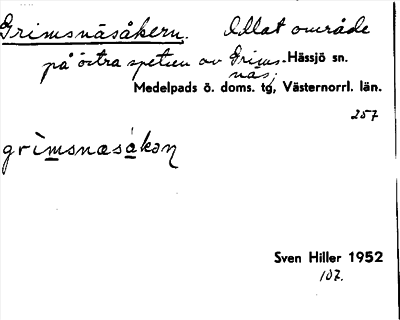 Grimsnäsåkern. Odlat område
på östra spetsen av Grims-Hässjö sn.
näs.
Medelpads ö. doms. tg, Västernorrl. län.
257
grìmsnæsåkəɳ
Sven Hiller 1952
107.